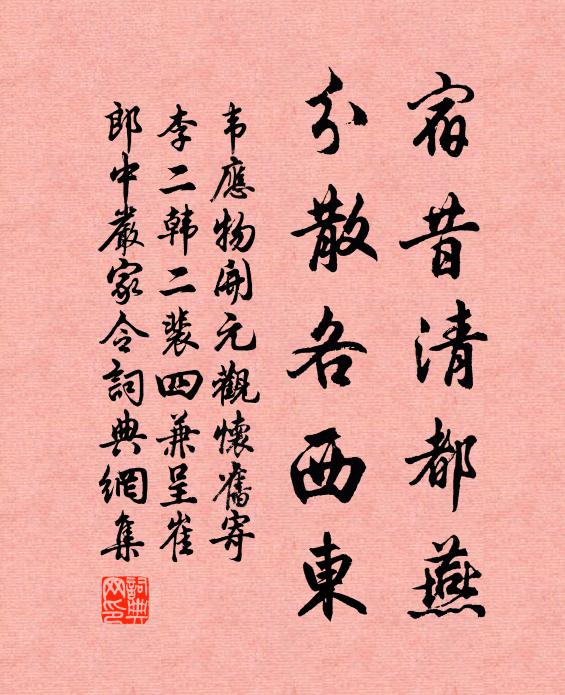 宿昔清都燕
分散各西東
韦應物開元觀懷舊寄
李二韩二裴四兼呈崔
郎中嚴家令詞典網集
詞典网印